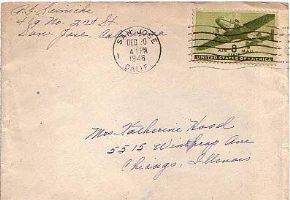 419 No. 22nd St.
San Jose, California
SAN JOSE
DEC 20
4 PM
1946
CALIF.
8
AIR MAIL
UNITED STATES OF AMERICA
Mrs. Katherine Hood
5515 Winthrop Ave
Chicago, Illinois